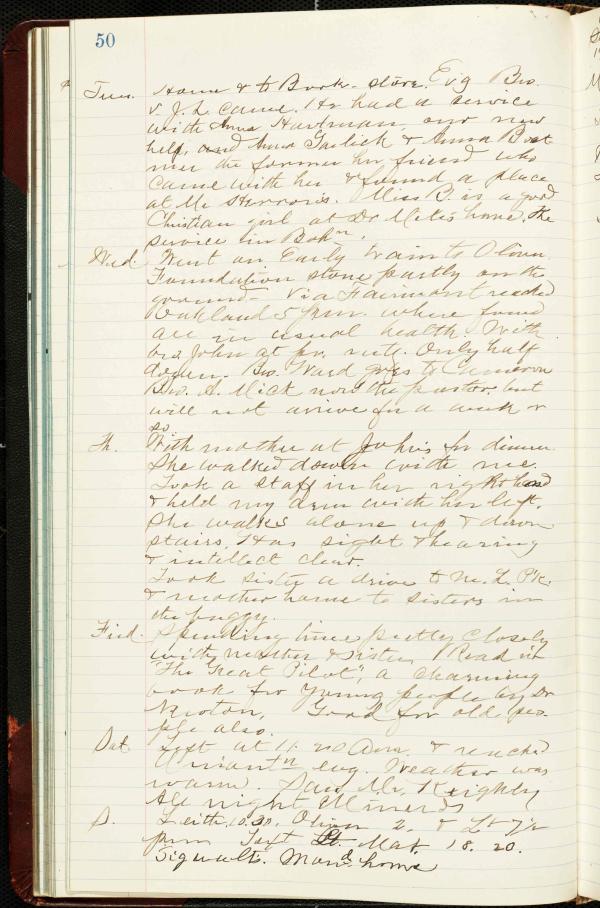 50
Tues. Home & to Book-store. Ev'g Bro.
v. J. L. came. He had a service
with Anna Hartman, our new
help, and Anna Garlick & Anna B
the former her friend who
came with her & found a place
at Mr Herron's. Miss B. is a good
Christian girl at Dr Metis home. The
service in Bohn.
Wed. Went on Early train to Oliver.
Foundation stone partly on the
ground - Via Fairmont reached
Oakland 5 p.m. where found
all in usual health. With
bro. John at pr. mtg. Only half
dozen. Bro. Ward goes to Cameron
Bro. A. Mick now the pastor but
will not arrive for a week or
so.
Th. With mother at John's for dinner.
She walked down with me.
Took a staff in her right hand
& held my arm with her left.
She walks alone up & down
stairs. Has sight & hearing
& intellect clear.
Took sister a drive to Mt. L. P'k.
& mother home to sisters in
the buggy.
Frid. Spending time pretty closely
with mother & sister. Read in
"The Great Pilot", a charming
book for young people by Dr
Newton. Good for old peo-
ple also.
Sat. Left at 11.20 a.m. & reached
Union'tn evg. Weather was
warm. Saw Mr. Keighley
All night Miner's
S. Leith 10.30, Oliver 2, & L 7½
p.m. Text Mat. 18. 20.
Mond. home